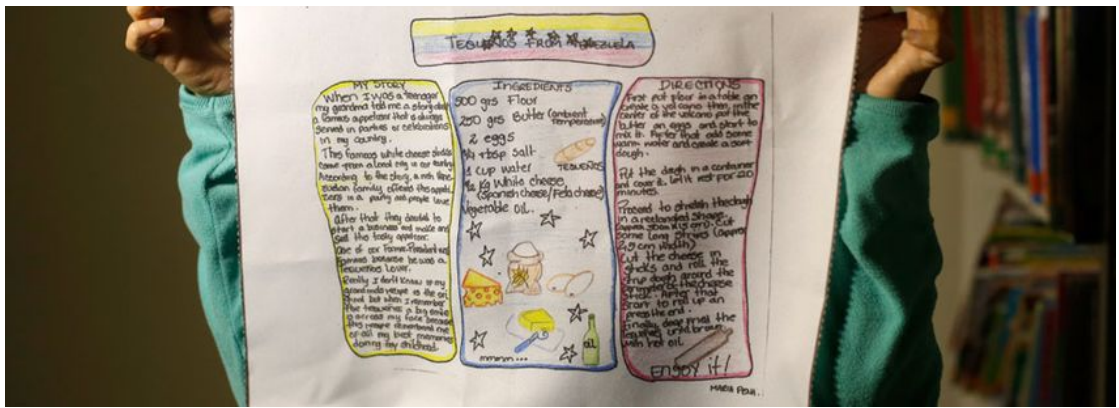 TEQUEÑOS FROM VENEZUELA
MY STORY
When I was a teenager
my grandma told me a story about
a famous appetizer that is always
served in parties or celebrations
in my country.
This famous white cheese sticks
come from a local city in our country
According to the story, a rich
family offered this appeti
zers in a party and people love
them.
After that they decided to
start a business and make and
sell this tasty appetizer.
One of our Former President was
famous because he was a
Tequeños Lover.
Really I don't know if my
grandma's recipe is the ori
ginal but when I remember
the tequeños a big smile
is across my face because
this people remembered me
of all my best memories
during my childhood.
INGREDIENTS
500 grs Flour
250 grs Butter (ambient
temperature)
2 eggs
tbsp salt
1 cup water
TEQUEÑOS
1/2 Kg White cheese
(Spanish cheese/Feta cheese)
Vegetable oil.
oil
mmmm...
DIRECTIONS
First put flour in a table an
create a volcano then, in the
center of the volcano put the
butter an eggs and start to
mix it. After that add some
warm water and create a soft
dough.
Put the dough in a container
and cover it. Let it rest for 20
minutes.
Proceed to stretch the dough
in a rectangled shape
(approx cm). Cut
some long stripes (approx
2,5 cm width)
Cut the cheese in
sticks and roll the
the dough around the
the cheese
stick. After that
start to roll up an
press the end.
Finally, deep fried the
tequeños until brown
with hot oil.
ENJOY it!
MARIA PEÑA.